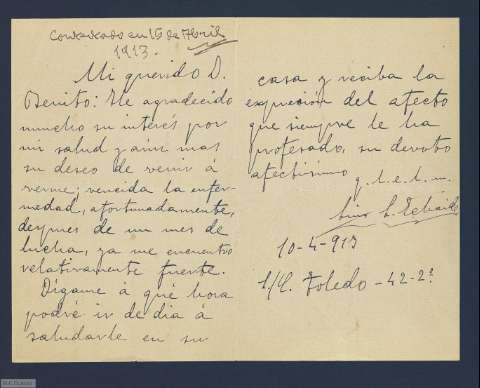 Contestado en 15 de Abril
1913.
Mi querido D.
Benito: He agradecido
mucho su interés por
mi salud y aún mas
su deseo de venir á
verme; vencida la enfer-
medad, afortunadamente,
despues de un mes de
lucha, ya me encuentro
relativamente fuerte.
Dígame á qué hora
podré ir de dia á
saludarle en su
casa y reciba la
expresión del afecto
que siempre le ha
profesado, su devoto
afectísimo
q. l. e. l. m.
10-4-913
Toledo - 42-2º